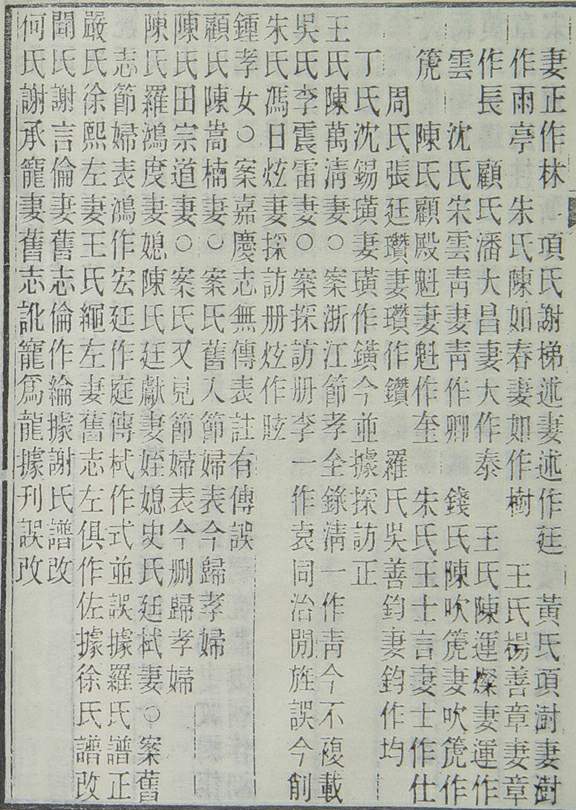 妻正作林　項氏謝梯述妻述作廷　黃氏項澍妻澍
作雨亭　朱氏陳如春妻如作樹　王氏楊善章妻章
作長　顧氏潘大昌妻大作泰　王氏陳運燦妻運作
雲　沈氏宋雲靑妻靑作卿　錢氏陳吹箎妻吹箎作
箎　陳氏顧殿魁妻魁作奎　朱氏王士言妻士作仕
周氏張廷瓚妻瓚作鑽　羅氏吳善鈞妻鈞作均
丁氏沈錫璜妻璜作鐄今並據採訪正
王氏陳萬淸妻○案浙江節孝全錄淸一作靑今不複載
吳氏李震雷妻○案採訪册李一作袁同治閒旌誤今削
朱氏馮日炫妻採訪册炫作眩
鍾孝女○案嘉慶志無傳表註有傳誤
顧氏陳嵩楠妻○案氏舊入節婦表今歸孝婦
陳氏田宗道妻○案氏又見節婦表今删歸孝婦
陳氏羅鴻度妻媳陳氏廷獻妻姪媳史氏廷栻妻○案舊
志節婦表鴻作宏廷作庭傳栻作式並誤據羅氏譜正
嚴氏徐熙左妻王氏繩左妻舊志左俱作佐據徐氏譜改
聞氏謝言倫妻舊志倫作綸據謝氏譜改
何氏謝承寵妻舊志訛寵爲龍據刊誤改